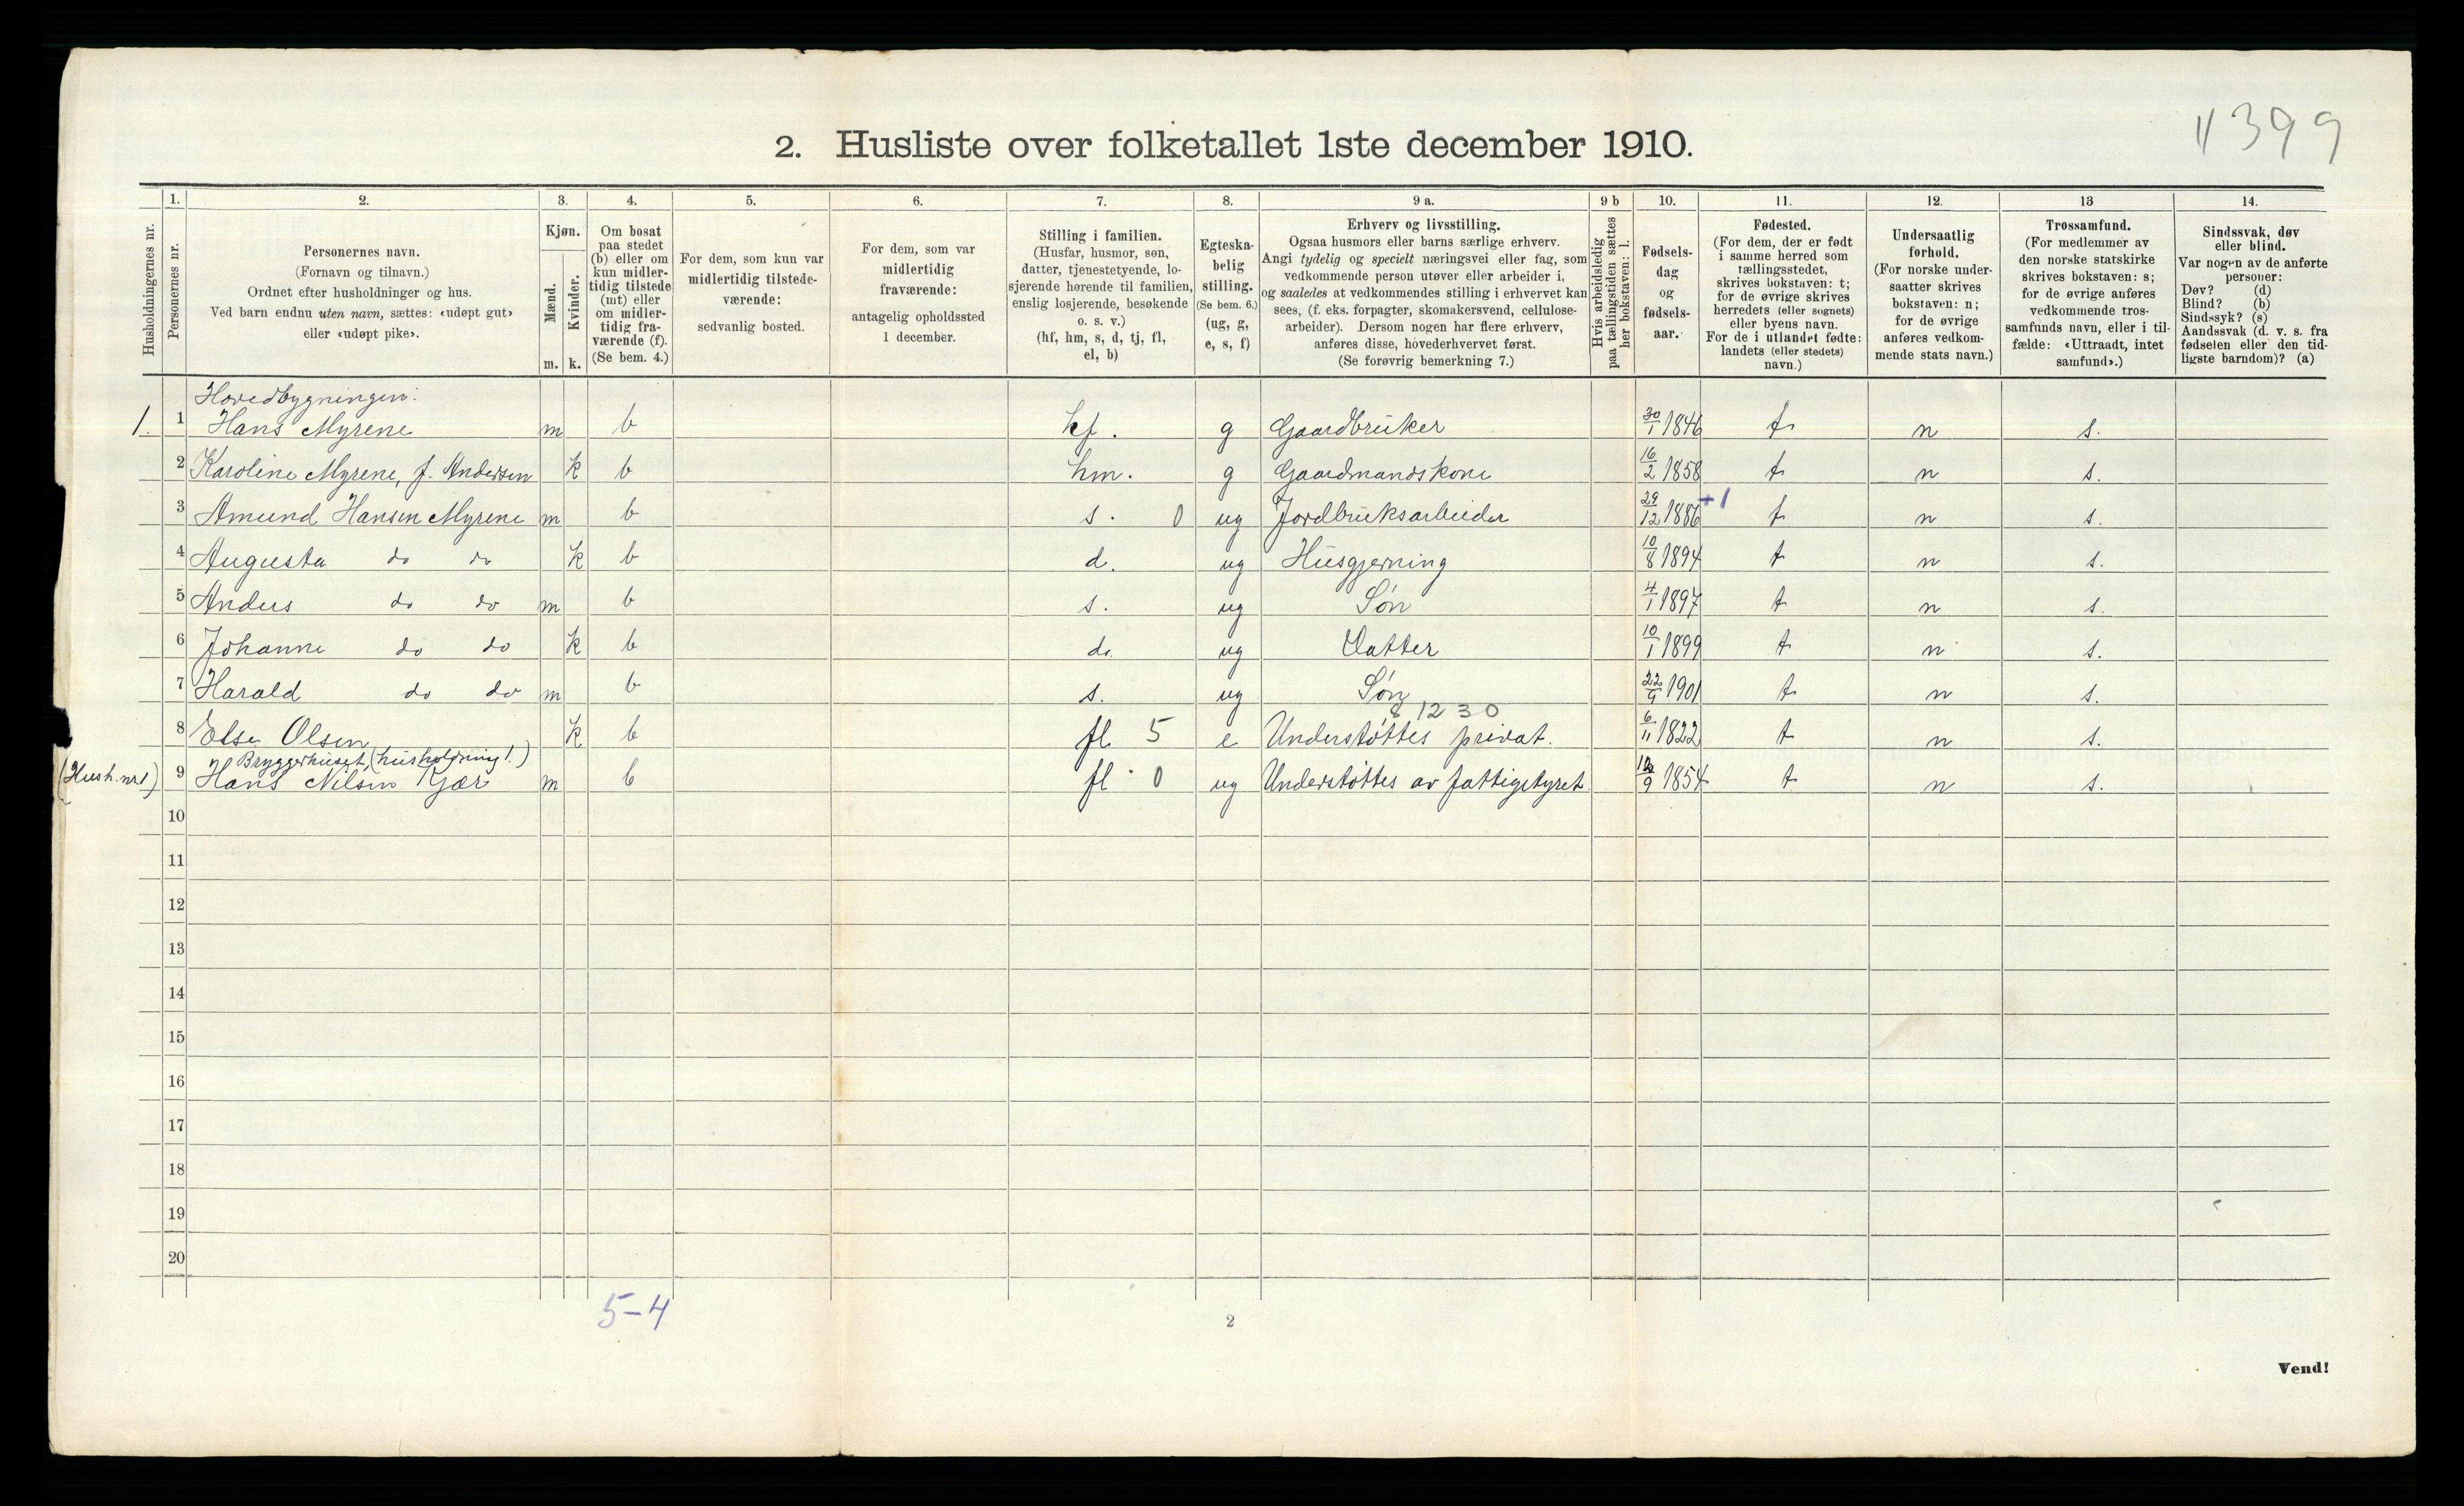 11399
2. Husliste over folketallet 1ste december 1910.
Husholdningernes nr.
1.
Personernes nr.
2.
Personernes navn.
(Fornavn og tilnavn.)
Ordnet efter husholdninger og hus.
Ved barn endnu uten navn, sættes: «udøpt gut»
eller «udøpt pike».
3.
Kjøn.
Mænd.
Kvinder.
m. k.
4.
Om bosat
paa stedet
(b) eller om
kun midler-
tidig tilstede
(mt) eller
om midler-
tidig fra-
værende (f).
(Se bem. 4.)
5.
For dem, som kun var
midlertidig tilstede-
værende:
sedvanlig bosted.
6.
For dem, som var
midlertidig
fraværende:
antagelig opholdssted
1 december.
7.
Stilling i familien.
(Husfar, husmor, søn,
datter, tjenestetyende, lo-
sjerende hørende til familien,
enslig losjerende, besøkende
o. s. v.)
(hf, hm, s, d, tj, fl,
el, b)
8.
Egteska-
belig
stilling.
(Se bem. 6.)
(ug, g,
e, s, f)
9 a.
Erhverv og livsstilling.
Ogsaa husmors eller barns særlige erhverv.
Angi tydelig og specielt næringsvei eller fag, som
vedkommende person utøver eller arbeider i,
og saaledes at vedkommendes stilling i erhvervet kan
sees, (f. eks. forpagter, skomakersvend, cellulose-
arbeider). Dersom nogen har flere erhverv,
anføres disse, hovederhvervet først.
(Se forøvrig bemerkning 7.)
9 b
Hvis arbeidsledig
paa tællingstiden sættes
her bokstaven: l.
10.
Fødsels-
dag
og
fødsels-
aar.
11.
Fødested.
(For dem, der er født
i samme herred som
tællingsstedet,
skrives bokstaven: t;
for de øvrige skrives
herredets (eller sognets)
eller byens navn.
For de i utlandet fødte:
landets (eller stedets)
navn.)
12.
Undersaatlig
forhold.
(For norske under-
saatter skrives
bokstaven: n;
for de øvrige
anføres vedkom-
mende stats navn.)
13
Trossamfund.
(For medlemmer av
den norske statskirke
skrives bokstaven: s;
for de øvrige anføres
vedkommende tros-
samfunds navn, eller i til-
fælde: «Uttraadt, intet
samfund».)
14.
Sindssvak, døv
eller blind.
Var nogen av de anførte
personer:
Døv? (d)
Blind? (b)
Sindssyk? (s)
Aandssvak (d. v. s. fra
fødselen eller den tid-
ligste barndom)? (a)
Hovedbygningen:
1. 1 Hans Myrene m b hf. g Gaardbruker 30/1 1846 t n s.
2 Karoline Myrene, f. Andersen k b hm. g Gaardmandskone 16/2 1858 t n s.
3 Amund Hansen Myrene m b s. 0 ug Jordbruksarbeider 29/12 1886 +1 t n s.
4 Augusta do do k b d. ug Husgjerning 10/8 1894 t n s.
5 Anders do do m b s. ug Søn 4/1 1897 t n s.
6 Johanne do do k b d. ug Datter 10/1 1899 t n s.
7 Harald do do m b s. ug Søn 22/9 1901 t n s.
8 12 30
8 Else Olsen k b fl 5 e Understøttes privat. 6/11 1822 t n s.
Bryggerhuset, (husholdning 1.)
(Hush. nr. 1) 9 Hans Nilsen Kjær m b fl 0 ug Understøttes av fattigstyret 1854 t n s.
10
11
12
13
14
15
16
17
18
19
20
5–4
2
Vend!